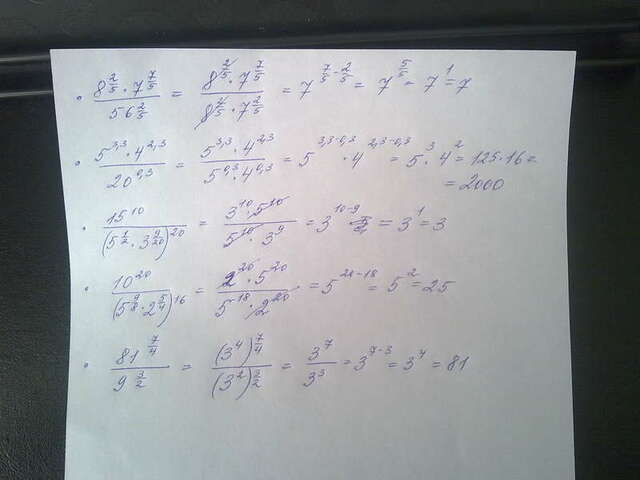 • 8^(2/5) · 7^(7/5) / 56^(2/5) = 8^(2/5) · 7^(7/5) / 8^(2/5) · 7^(2/5) = 7^(7/5 - 2/5) = 7^(5/5) = 7^1 = 7
• 5^3,3 · 4^2,3 / 20^0,3 = 5^3,3 · 4^2,3 / 5^0,3 · 4^0,3 = 5^3,3-0,3 · 4^2,3-0,3 = 5^3 · 4^2 = 125 · 16 =
= 2000
• 15^10 / (5^(1/2) · 3^(9/20))^20 = 3^10 · 5^10 / 5^10 · 3^9 = 3^10-9 = 3^1 = 3
• 10^20 / (5^(9/8) · 2^(5/4))^16 = 2^20 · 5^20 / 5^18 · 2^20 = 5^20-18 = 5^2 = 25
• 81^(7/4) / 9^(3/2) = (3^4)^(7/4) / (3^2)^(3/2) = 3^7 / 3^3 = 3^7-3 = 3^4 = 81